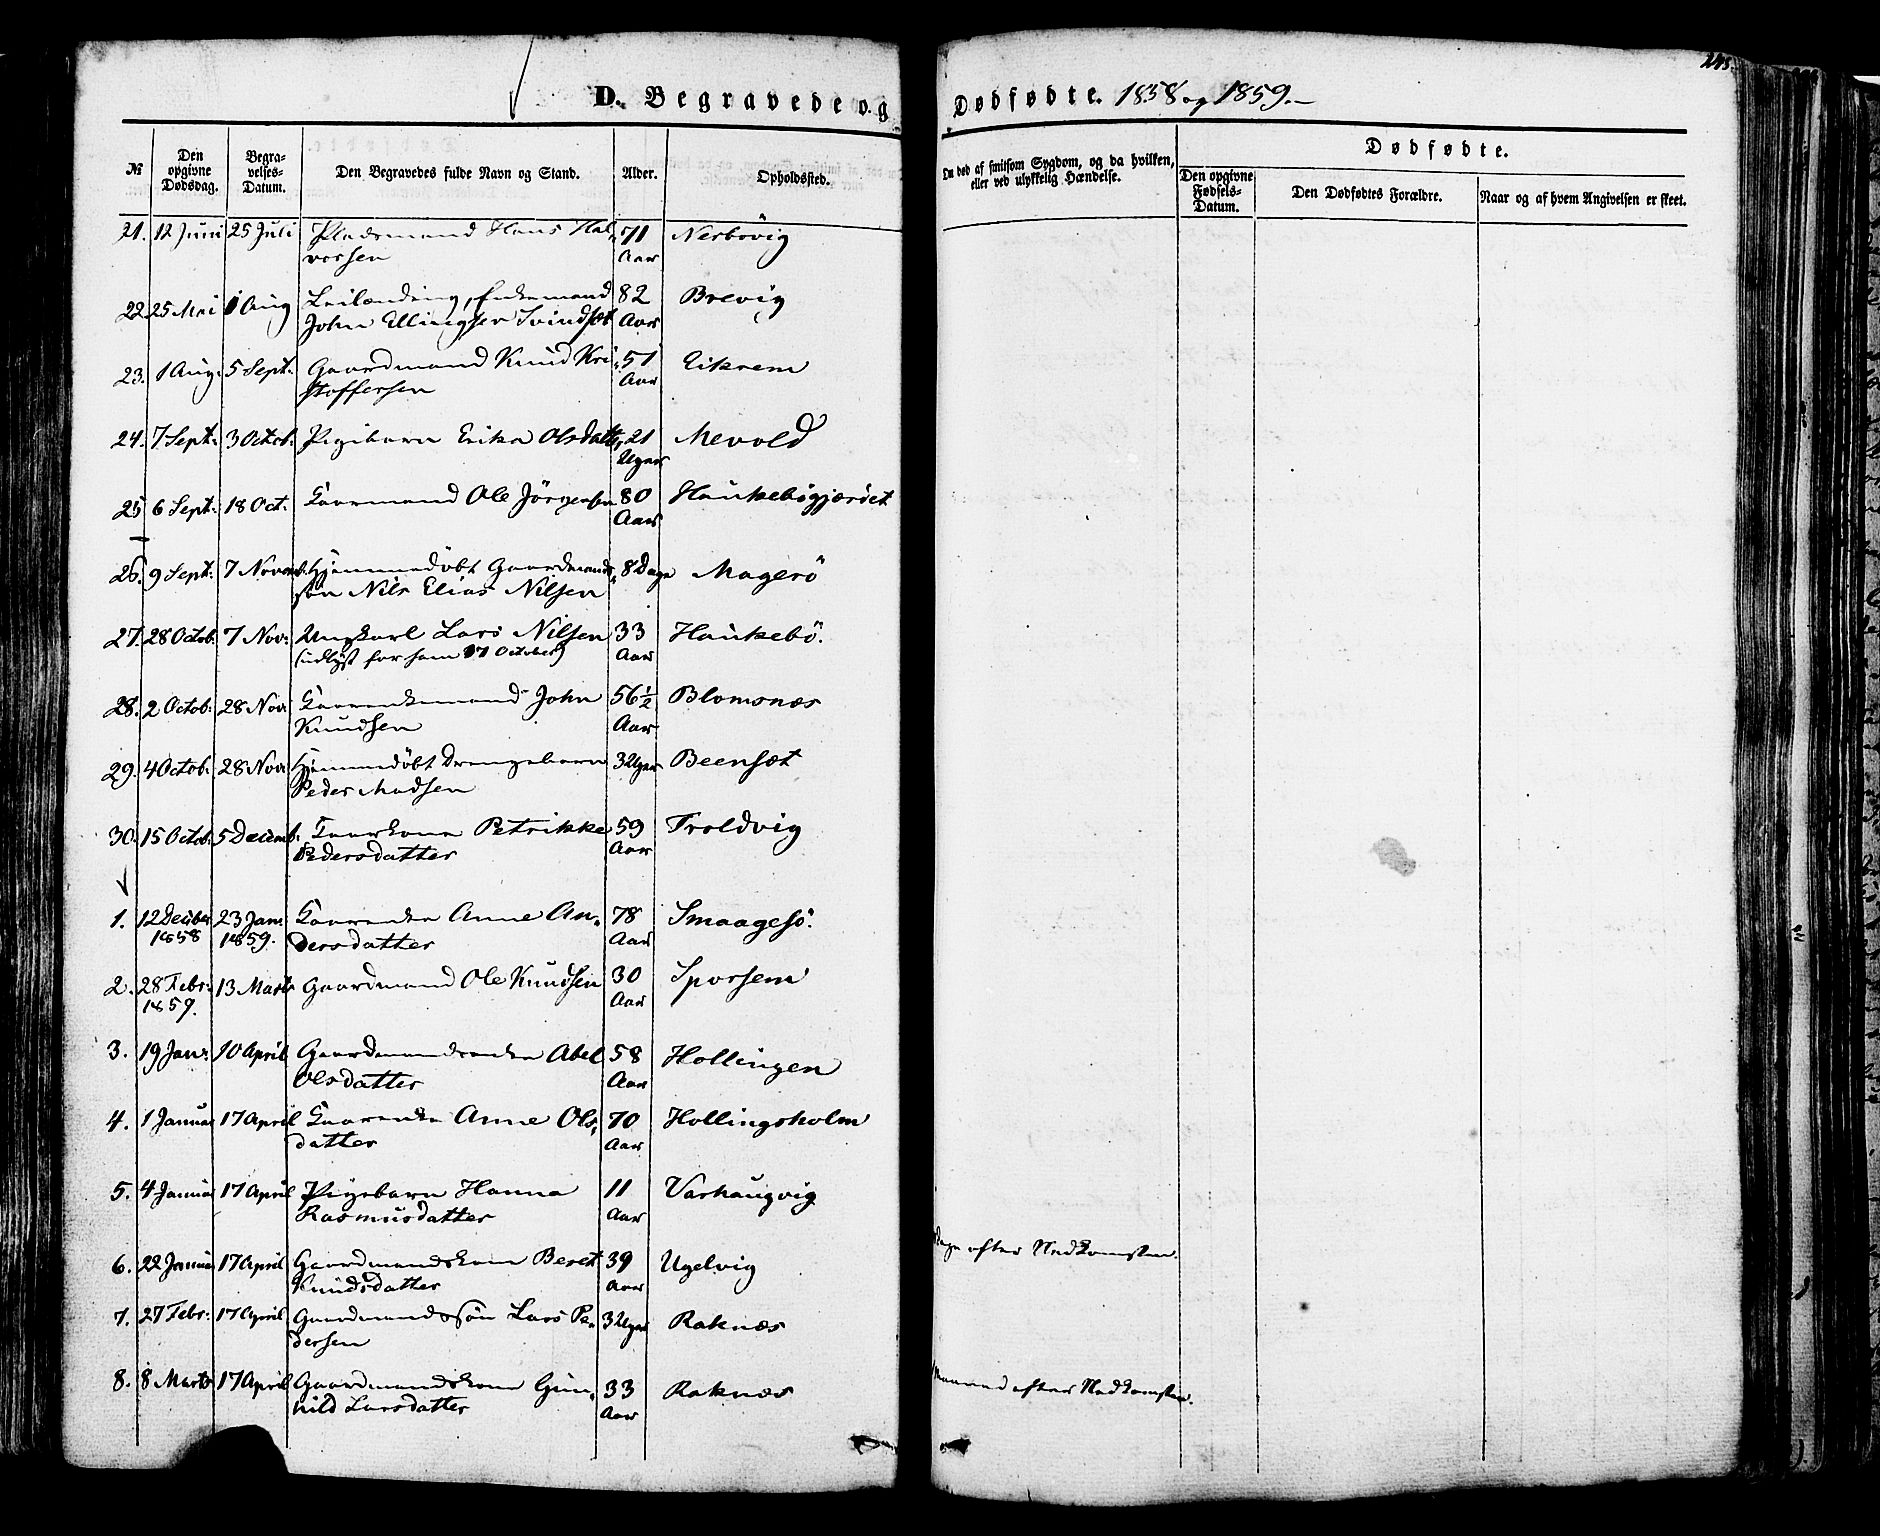 248.
D. Begravede og Dødfødte. 1858 og 1859.
№
Den opgivne Dødsdag.
Begravelses-Datum.
Den Begravedes fulde Navn og Stand.
Alder.
Opholdssted.
Om død af smitsom Sygdom, og da hvilken,
eller ved ulykkelig Hændelse.
Dødfødte.
Den opgivne Fødsels-Datum.
Den Dødfødtes Forældre.
Naar og af hvem Angivelsen er skeet.
21. 12 Juni 25 Juli Pladsmand Hans Hal- 71 Nerbövig
vorsen Aar
22. 25 Mai 1 Aug Leilænding, Enkemand 82 Brevig
John Ellingsen Svindset Aar
23. 1 Aug. 5 Sept. Gaardmand Knud Kri- 51 Eikrem
stoffersen Aar
24. 7 Sept: 3 Octob. Pigebarn Erika Olsdatt, 21 Mevold
Uger
25 6 Sept: 18 Oct. Kaarmand Ole Jörgensen 80 Haukebögjærdet
Aar
26. 9 Sept: 7 Novemb. Hjemmedöbt Gaardmands- 8 Dage Magerö
sön Nils Elias Nilsen
27. 28 Octob. 7 Nov: Ungkarl Lars Nilsen 33 Haukebö.
(udlyst for ham 17 October) Aar
28. 2 Octob: 28 Nov: Kaarenkemand John 56½ Blomsnæs
Knudsen Aar
29. 4 Octob: 28 Nov: Hjemmedöbt Drengebarn 3 Uger Beensæt
Peder Madsen
30. 15 Octob: 5 Decemb. Kaarkone Petrikke 59 Troldvig
Pedersdatter Aar
1. 12 Decber 23 Jan: Kaarenke Anne An- 78 Smaagesö.
1858 1859. dersdatter Aar
2. 28 Febr: 13 Marts Gaardmand Ole Knudsen 30 Sporsem
1859. Aar
3. 19 Jan: 10 April Gaardmandsenke Abel 58 Hollingen
Olsdatter Aar
4. 1 Januar 17 April Kaarenke Anne Ols- 70 Hollingsholm
datter Aar
5. 4 Januar 17 April Pigebarn Hanna 11 Varhaugvig
Rasmusdatter Aar
6. 22 Januar 17 April Gaardmandskone Beret 39 Ugelvig
Knudsdatter Aar
Dage efter Nedkomsten.
7. 27 Febr: 17 April Gaardmandssön Lars Pe- 3 Uger Raknæs
dersen
8. 8 Marts 17 April Gaardmandskone Gun- 33 Raknæs
hild Larsdatter Aar
Maaned efter Nedkomsten.